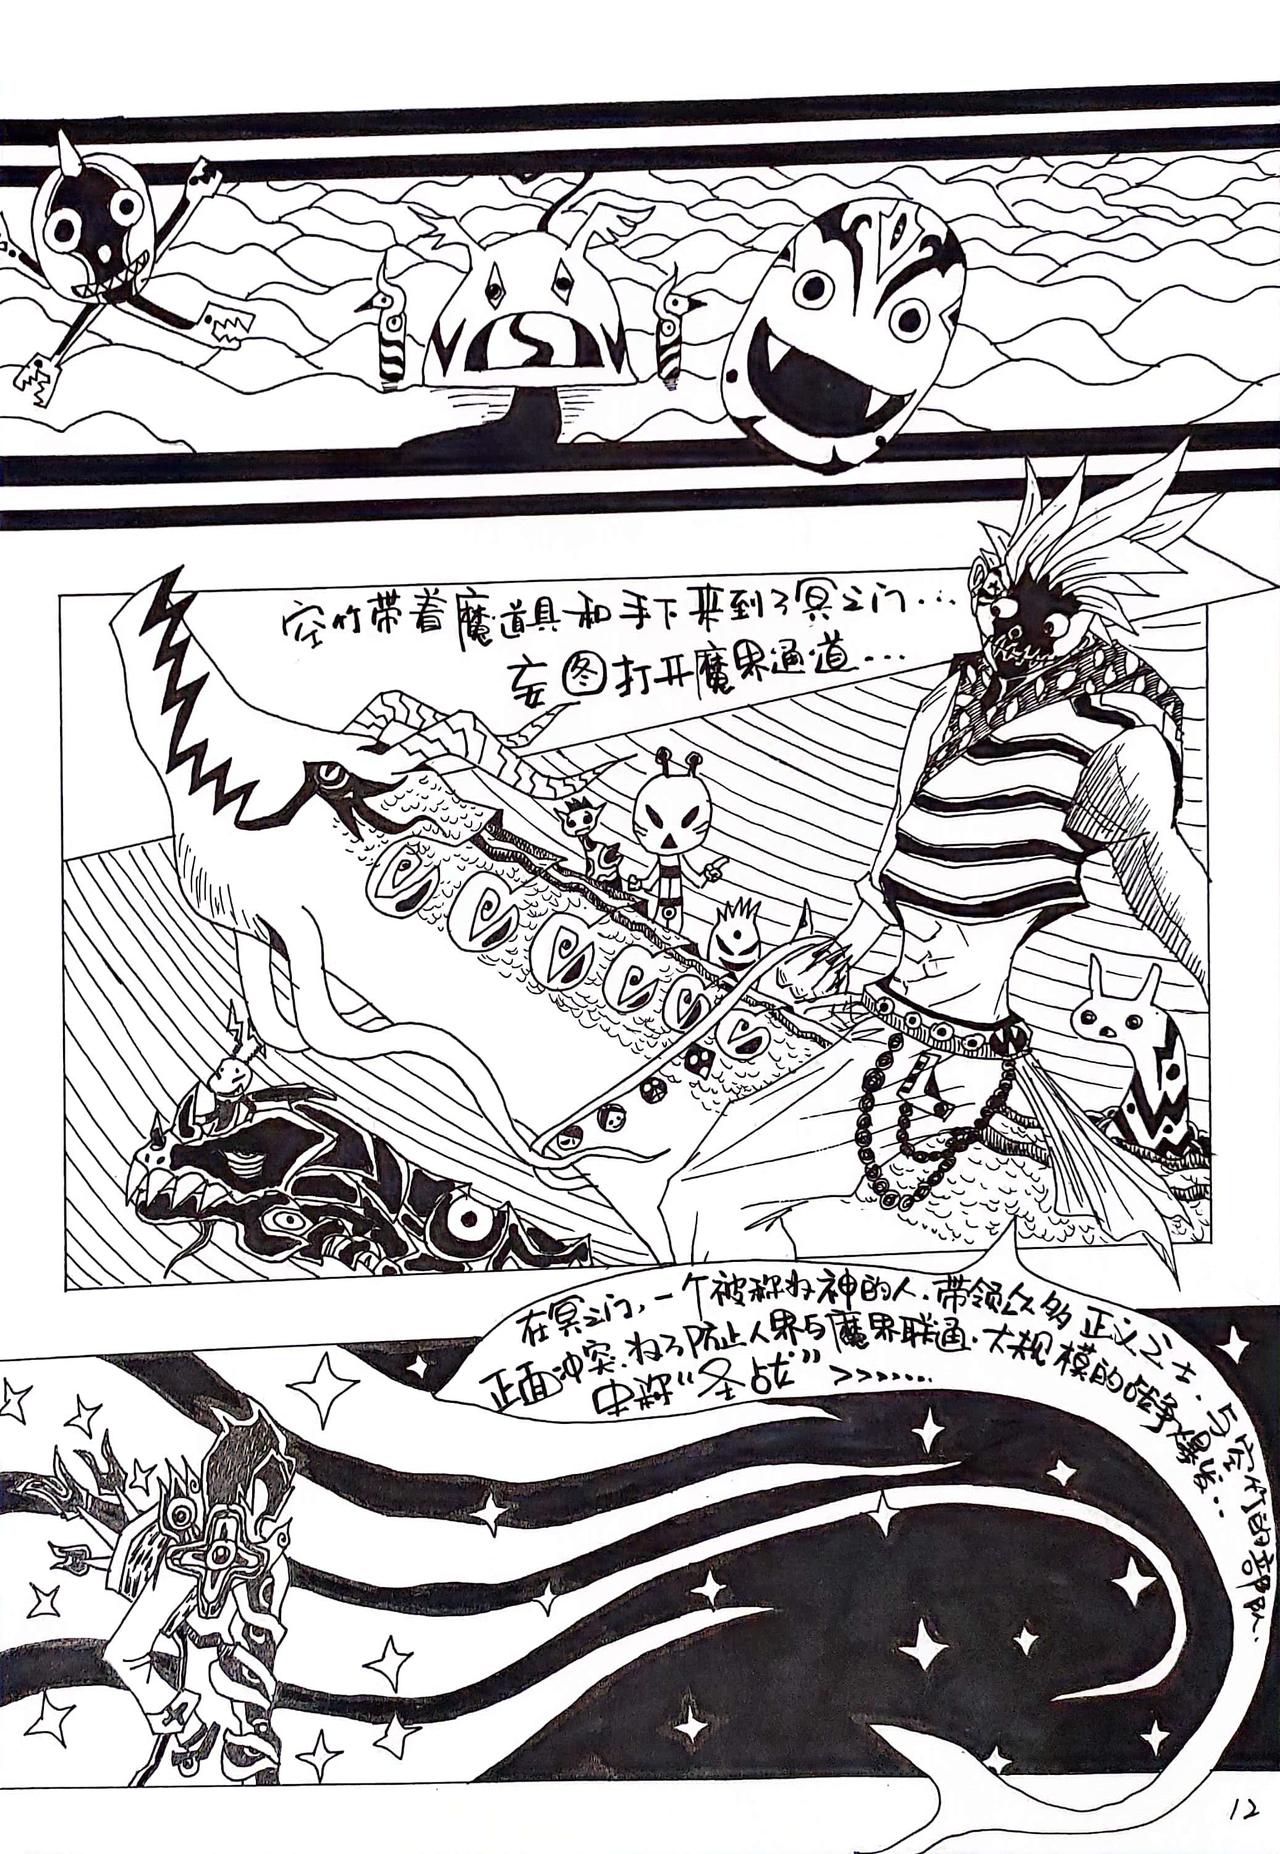 空竹带着魔道具和手下来到了冥之门...
妄图打开魔界通道...
在冥之门,一个被称为神的人.带领众多正义之士.与空竹的部队.
正面冲突.为了防止人界与魔界联通.大规模的战争爆发..
史称“圣战”>>.......
12